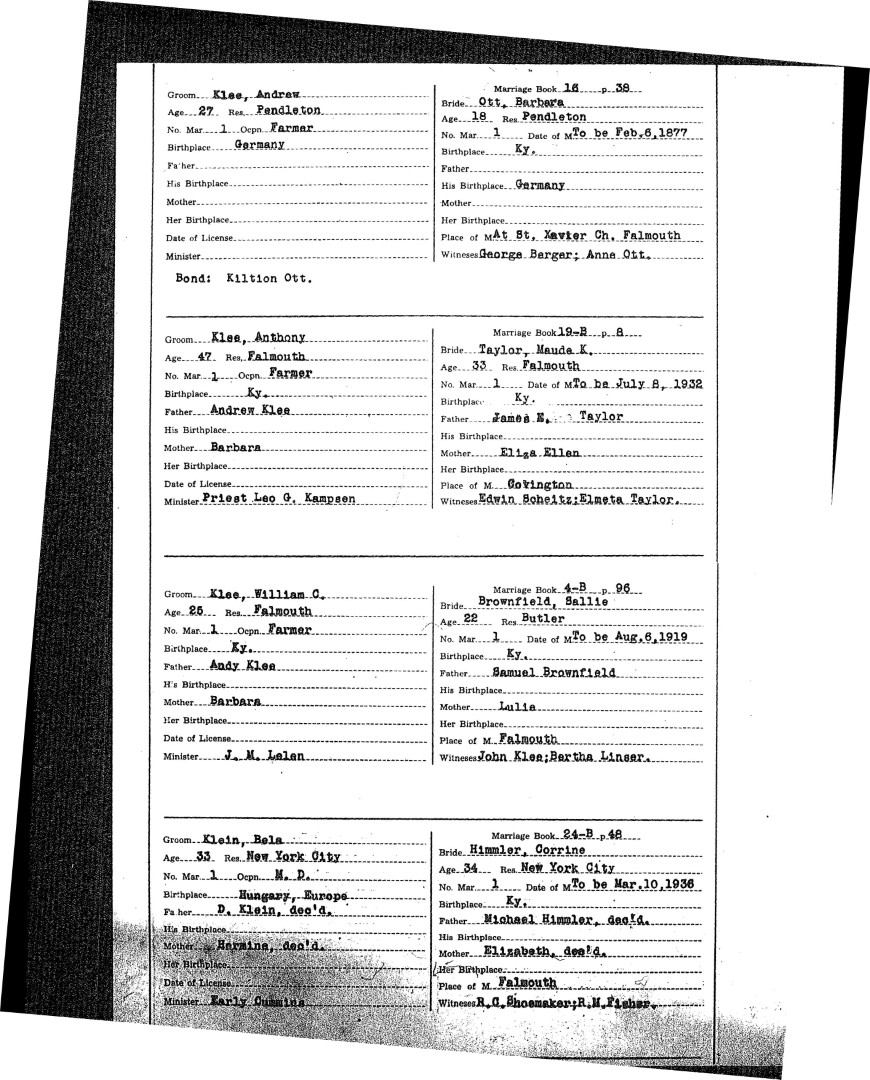 Groom Klee, Andrew
Age 27 Res. Pendleton
No. Mar. 1 Ocpn. Farmer
Birthplace Germany
Father
His Birthplace
Mother
Her Birthplace
Date of License
Minister
Marriage Book 16 p. 38
Bride Ott, Barbara
Age 18 Res. Pendleton
No. Mar. 1 Date of M. To be Feb.6,1877
Birthplace Ky.
Father
His Birthplace Germany
Mother
Her Birthplace
Place of M. At St. Xavier Ch. Falmouth
Witnesses George Berger; Anne Ott.
Bond: Kiltion Ott.
Groom Klee, Anthony
Age 47 Res. Falmouth
No. Mar. 1 Ocpn. Farmer
Birthplace Ky.
Father Andrew Klee
His Birthplace
Mother Barbara
Her Birthplace
Date of License
Minister Priest Leo G. Kampsen
Marriage Book 19-B p. 8
Bride Taylor, Maude K.
Age 33 Res. Falmouth
No. Mar. 1 Date of M. To be July 8, 1932
Birthplace Ky.
Father James E. Taylor
His Birthplace
Mother Eliza Ellen
Her Birthplace
Place of M. Covington
Witnesses Edwin Scheitz;Elmeta Taylor.
Groom Klee, William C.
Age 25 Res. Falmouth
No. Mar. 1 Ocpn. Farmer
Birthplace Ky.
Father Andy Klee
His Birthplace
Mother Barbara
Her Birthplace
Date of License
Minister J. M. Lelen
Marriage Book 4-B p. 96
Bride Brownfield, Sallie
Age 22 Res. Butler
No. Mar. 1 Date of M. To be Aug.6,1919
Birthplace Ky.
Father Samuel Brownfield
His Birthplace
Mother Lulie
Her Birthplace
Place of M. Falmouth
Witnesses John Klee;Bertha Linser.
Groom Klein, Bela
Age 33 Res. New York City
No. Mar. 1 Ocpn. M. D.
Birthplace Hungary, Europe
Father D. Klein, dec'd.
His Birthplace
Mother Hermine, dec'd.
Her Birthplace
Date of License
Minister Early Cummins
Marriage Book 24-B p. 48
Bride Himmler, Corrine
Age 34 Res. New York City
No. Mar. 1 Date of M. To be Mar.10,1936
Birthplace Ky.
Father Michael Himmler, dec'd.
His Birthplace
Mother Elizabeth, dec'd.
Her Birthplace
Place of M. Falmouth
Witnesses R.C.Shoemaker;R.M.Fisher.